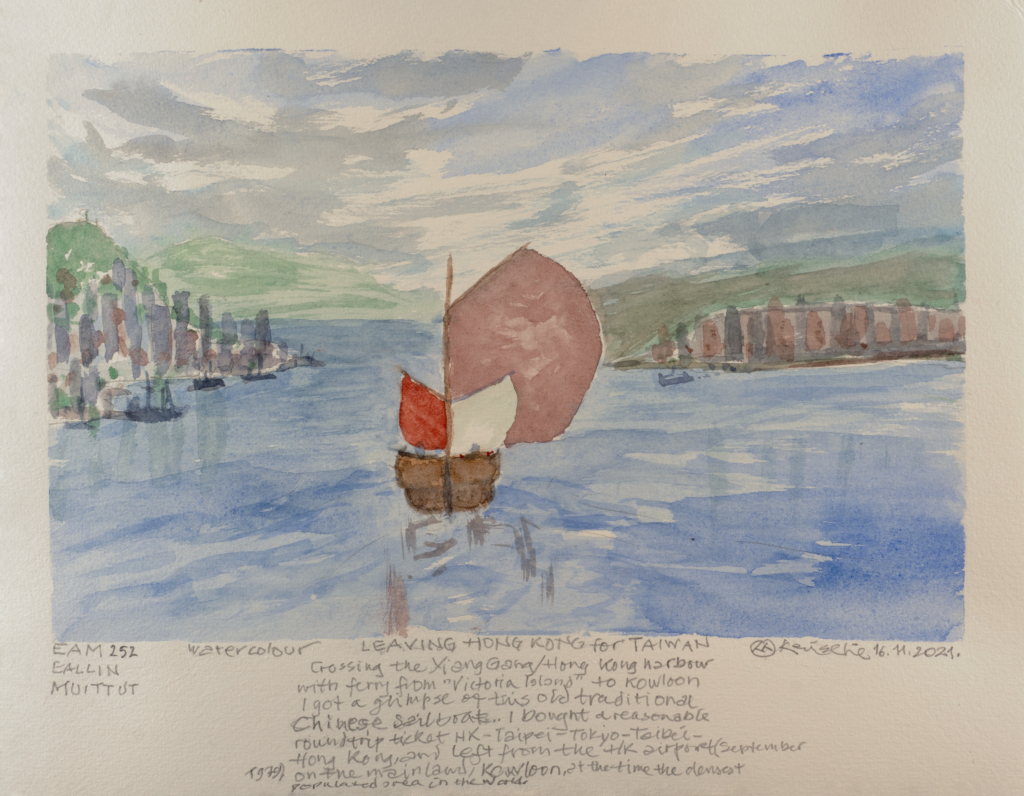 EAM 252
EALLIN
MUITTUT
watercolour
LEAVING HONG KONG for TAIWAN
16.11.2021.
Crossing the XiangGang/Hong Kong harbour
with ferry from "Victoria Island" to Kowloon
I got a glimpse of this old traditional
Chinese sailboat.. I bought a reasonable
roundtrip ticket HK-Taipei-Tokyo-Taibei-
Hong Kong, and left from the HK airport (September
1979) on the mainland, Kowloon, at the time the densest
populated area in the world.